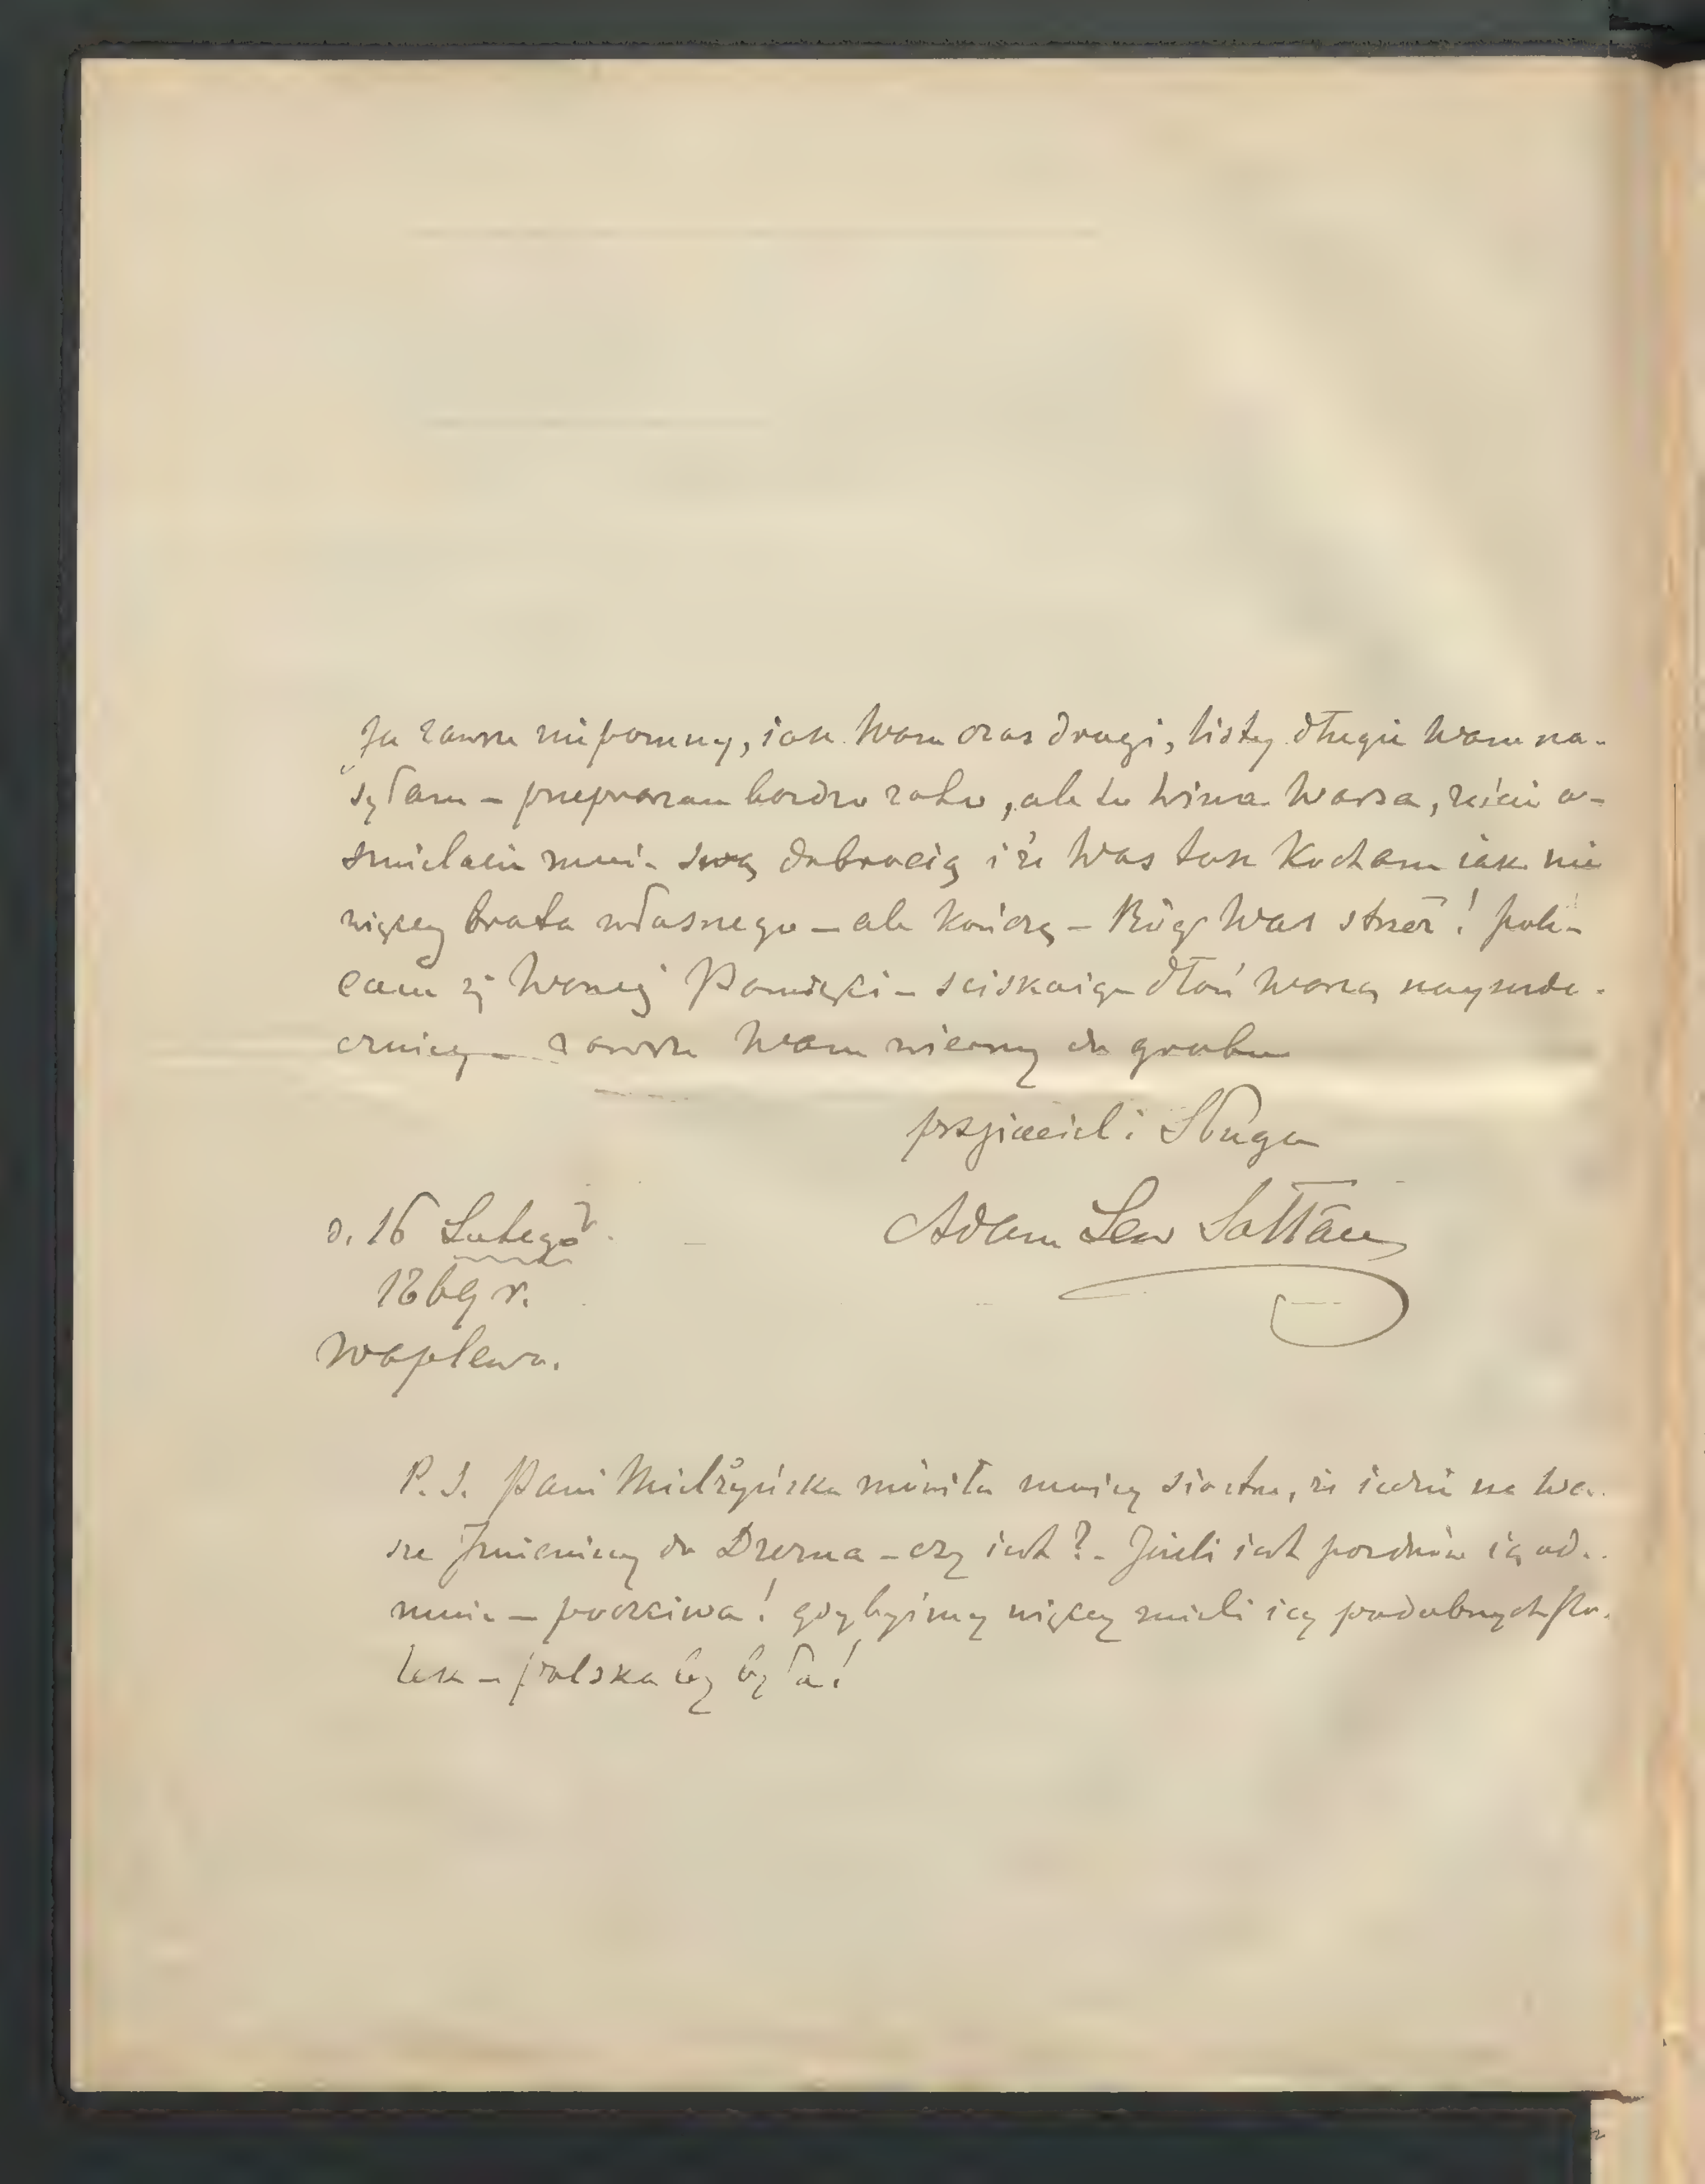 Ja zawsze niepomny, iak Wam czas drogi, listy długie Wam na-
syłam – przepraszam bardzo za to, ale to wina Wasza, żeście o-
śmielacie mnie swą dobrocią i że Was tak Kocham iak nie
więcey brata własnego – ale kończę – Bóg Was strzeż! pole-
cam się Waszej Pamięci – sciskaiąc dłoń Waszą nayserde-
czniey – zawsze Wam wierny do grobu
przyiaciel i Sługa
Adam Lew Sołtan
d. 16 Lutego
1869 r.
Waplewo.
P. S. Pani Mielżyńska mówiła moiey siostrze, że iedzie na Wa-
sze Imieniny do Drezna – czy iest? – Jeżeli iest pozdrów ią od-
mnie – poczciwa! gdybyśmy więcey mieli iey podobnych Po-
lek – Polska by była!